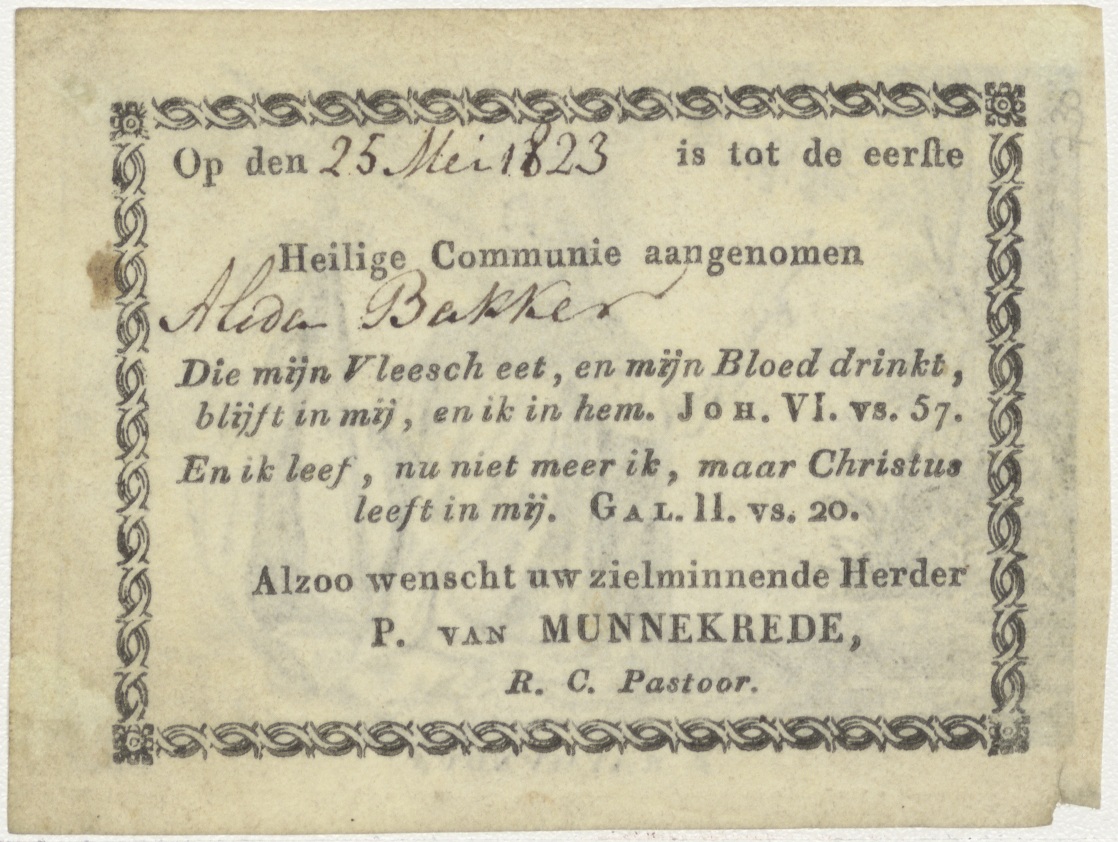 Op den 25 Mei 1823 is tot de eerſte
Heilige Communie aangenomen
Alida Bakker
Die mijn Vleesch eet, en mijn Bloed drinkt,
blijft in mij, en ik in hem. JOH. VI. vs. 57.
En ik leef, nu niet meer ik, maar Christus
leeft in mij. GAL. II. vs. 20.
Alzoo wenscht uw zielminnende Herder
P. VAN MUNNEKREDE,
R. C. Pastoor.